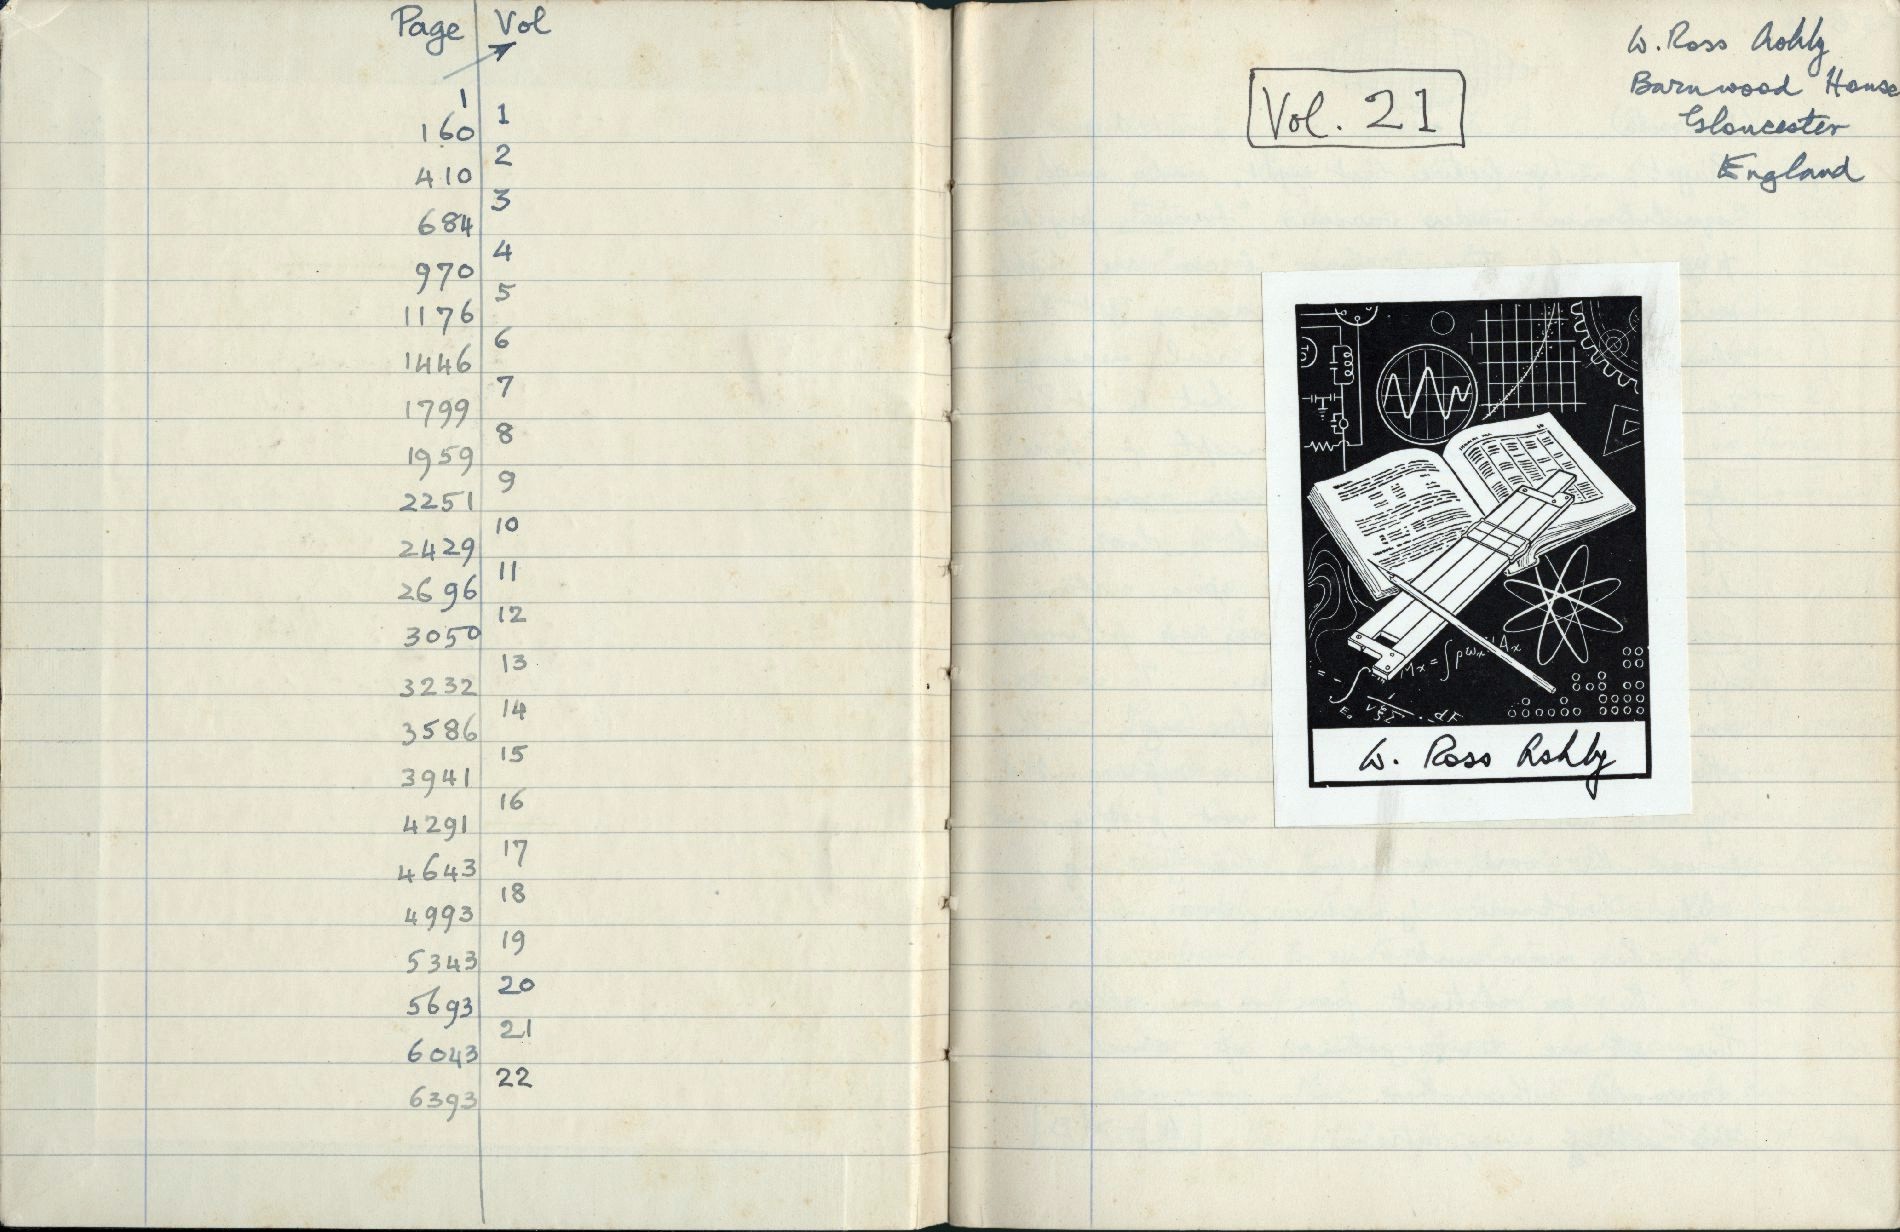 Page Vol
1
1
160
2
410
3
684
4
970
5
1176
6
1446
7
1799
8
1959
9
2251
10
2429
11
2696
12
3050
13
3232
14
3586
15
3941
16
4291
17
4643
18
4993
19
5343
20
5693
21
6043
22
6393
Vol. 21
W. Ross Ashby
Barnwood House
Gloucester
England
W. Ross Ashby